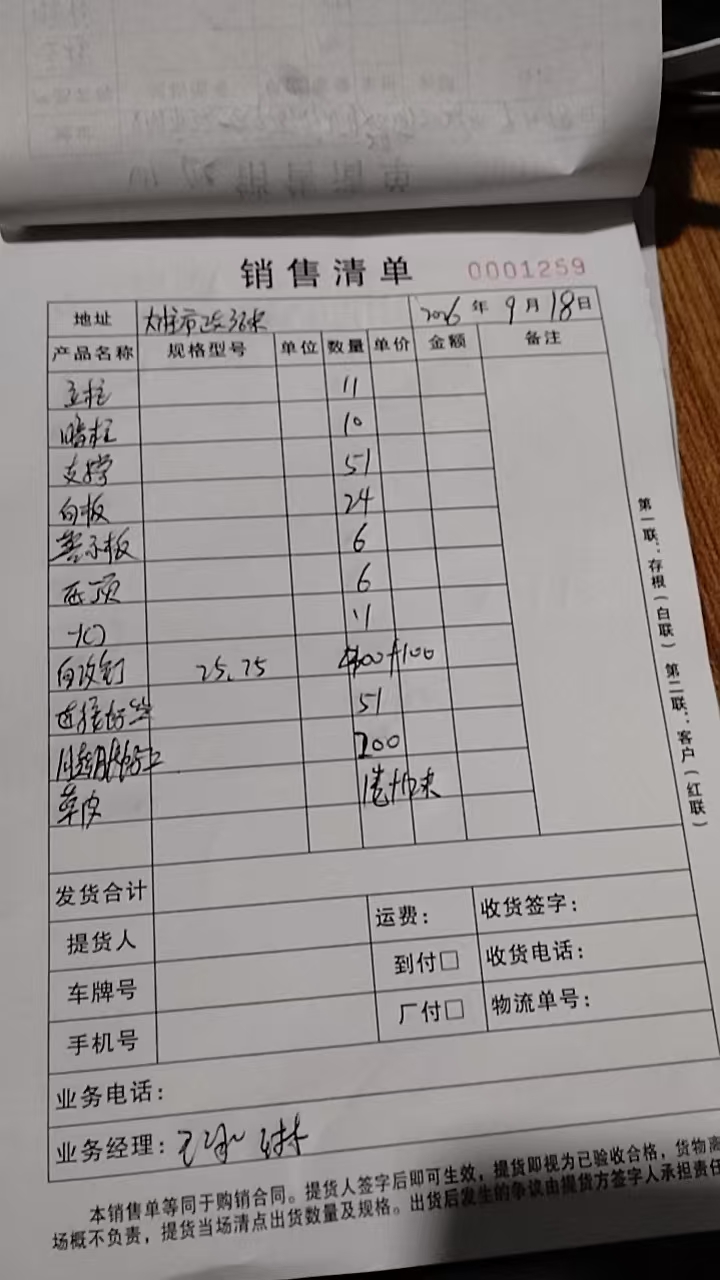 销售清单 0001259
地址 市政36米 2026年9月18日
产品名称 规格型号 单位 数量 单价 金额 备注
立柱 11
暗柱 10
支撑 51
白板 24
警示板 6
压顶 6
11
自攻钉 25.75 400+100
连接 51
200
草皮 1卷+
发货合计
提货人 运费： 收货签字：
车牌号 到付□ 收货电话：
手机号 厂付□ 物流单号：
业务电话：
业务经理：
本销售单等同于购销合同。提货人签字后即可生效，提货即视为已验收合格，货物离
场概不负责，提货当场清点出货数量及规格。出货后发生的争议由提货方签字人承担责任
第一联：存根（白联） 第二联：客户（红联）